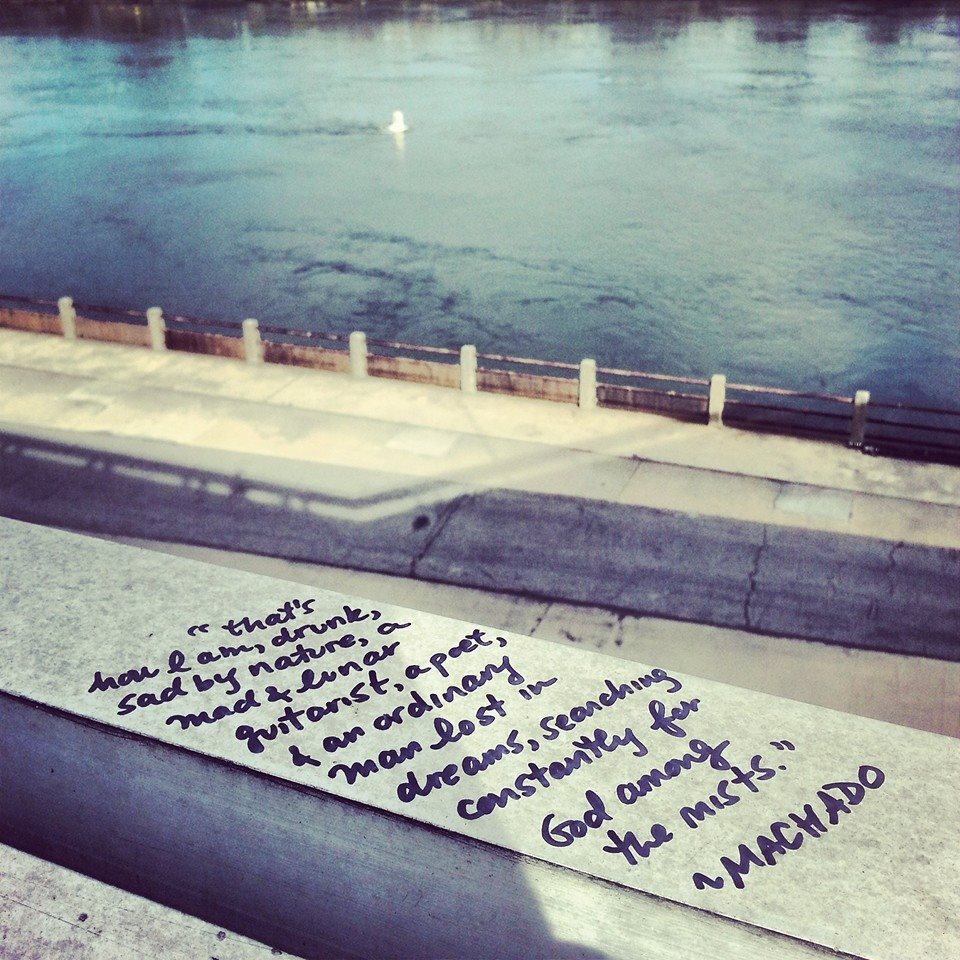 "that's
how I am, drunk,
sad by nature, a
mad & lunar
guitarist, a poet,
& an ordinary
man lost in
dreams, searching
constantly for
God among
the mists."
~MACHADO